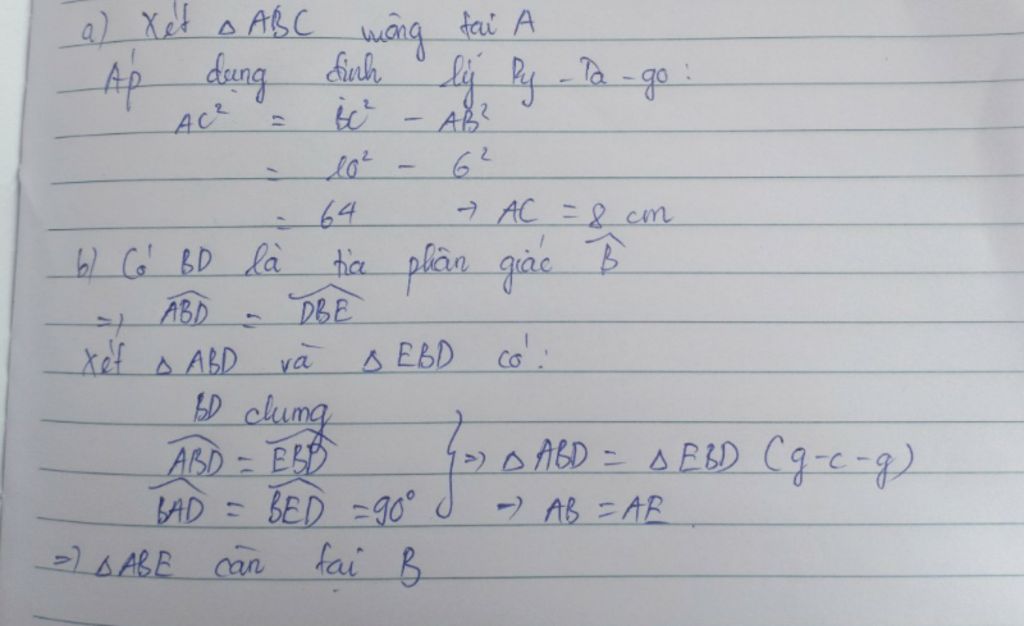 a) Xét △ABC vuông tại A
Áp dụng định lý Py-Ta-go:
AC² = BC² - AB²
= 10² - 6²
= 64 → AC = 8 cm
b) Có BD là tia phân giác B̂
=> ABD̂ = DBÊ
Xét △ABD và △EBD có:
BD chung
ABD̂ = EBD̂ } => △ABD = △EBD (g-c-g)
BAD̂ = BED̂ = 90° → AB = AE
=> △ABE cân tại B